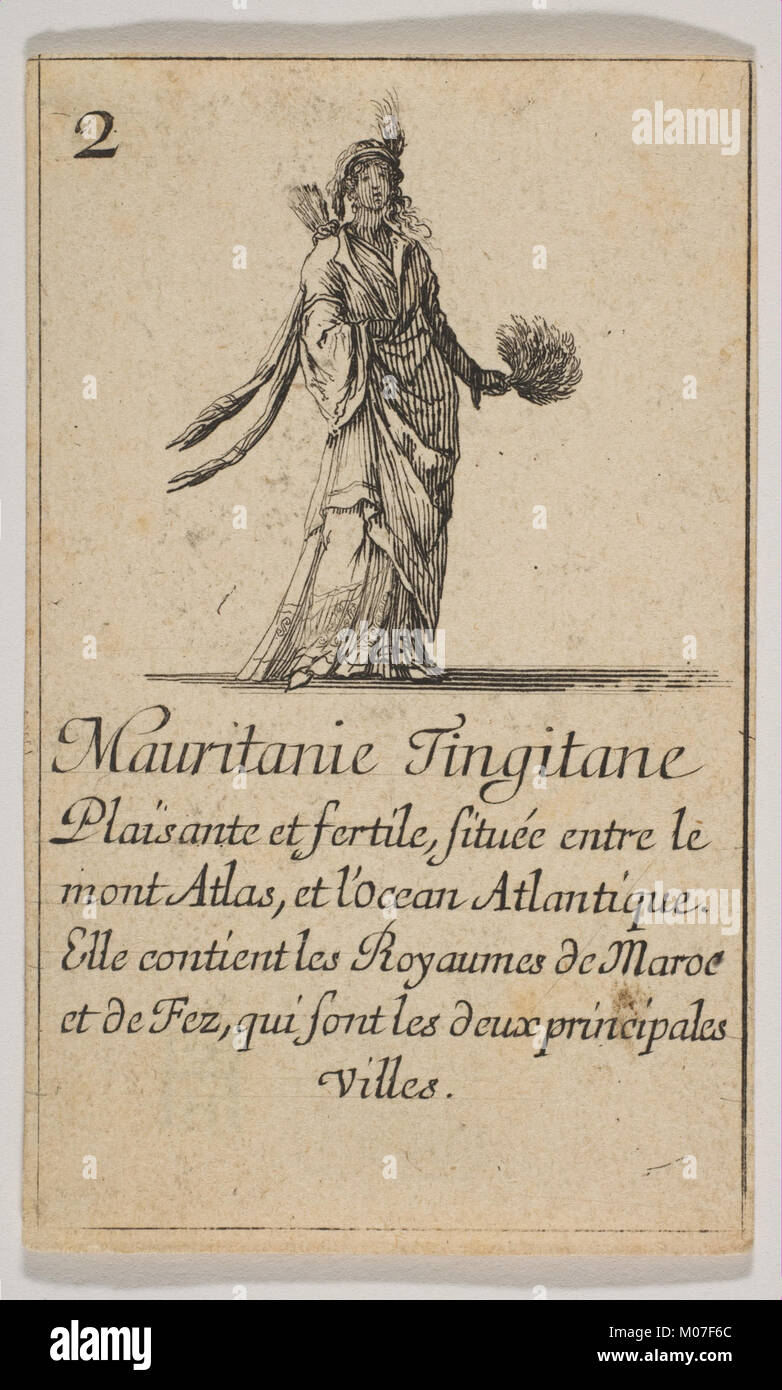 2
alamy
Mauritanie Tingitane
Plaisante et fertile, située entre le
mont Atlas, et l'Ocean Atlantique.
Elle contient les Royaumes de Maroc
et de Fez, qui sont les deux principales
Villes.
alamy
Image ID: M07F6C
www.alamy.com